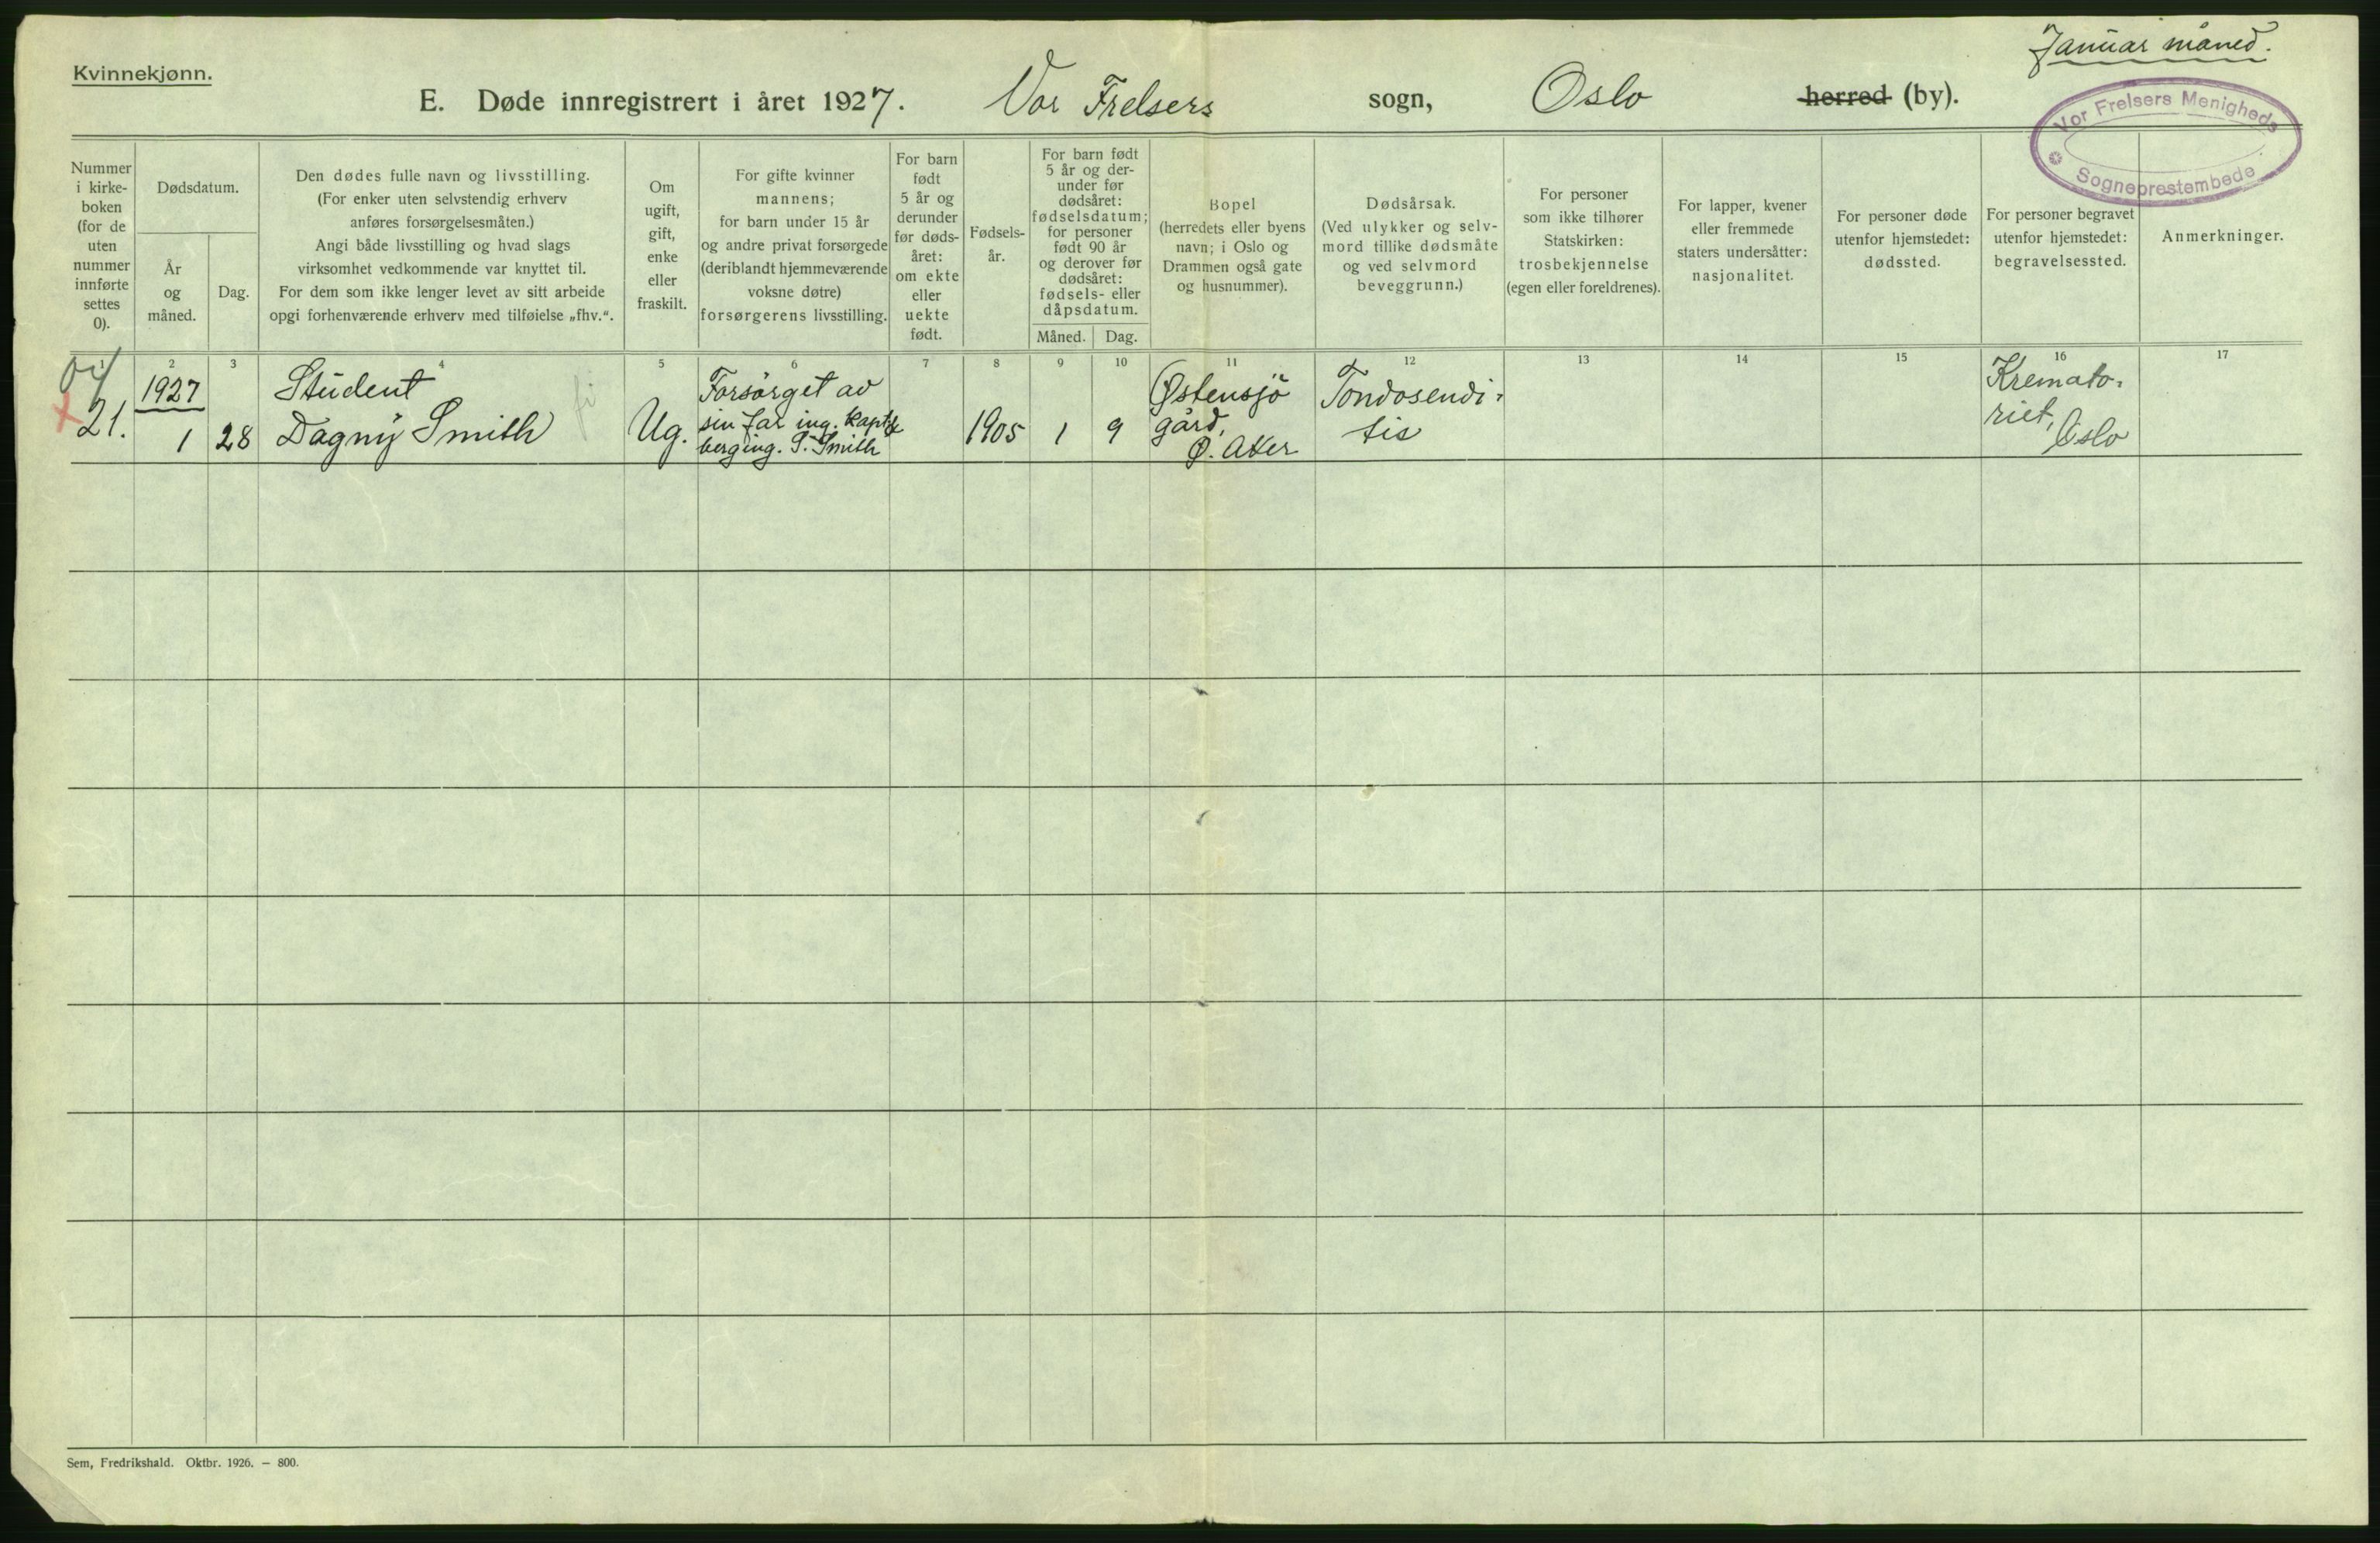 Januar måned.
Kvinnekjønn.
E. Døde innregistrert i året 1927. Vor Frelsers sogn, Oslo herred (by).
Vor Frelsers Menigheds
Sogneprestembede
Nummer
i kirke-
boken
(for de
uten
nummer
innførte
settes
0).
Dødsdatum.
År
og
måned.
Dag.
Den dødes fulle navn og livsstilling.
(For enker uten selvstendig erhverv
anføres forsørgelsesmåten.)
Angi både livsstilling og hvad slags
virksomhet vedkommende var knyttet til.
For dem som ikke lenger levet av sitt arbeide
opgi forhenværende erhverv med tilføielse „fhv.“.
Om
ugift,
gift,
enke
eller
fraskilt.
For gifte kvinner
mannens;
for barn under 15 år
og andre privat forsørgede
(deriblandt hjemmeværende
voksne døtre)
forsørgerens livsstilling.
For barn
født
5 år og
derunder
før døds-
året:
om ekte
eller
uekte
født.
Fødsels-
år.
For barn født
5 år og der-
under før
dødsåret:
fødselsdatum;
for personer
født 90 år
og derover før
dødsåret:
fødsels- eller
dåpsdatum.
Måned. Dag.
Bopel
(herredets eller byens
navn; i Oslo og
Drammen også gate
og husnummer).
Dødsårsak.
(Ved ulykker og selv-
mord tillike dødsmåte
og ved selvmord
beveggrunn.)
For personer
som ikke tilhører
Statskirken:
trosbekjennelse
(egen eller foreldrenes).
For lapper, kvener
eller fremmede
staters undersåtter:
nasjonalitet.
For personer døde
utenfor hjemstedet:
dødssted.
For personer begravet
utenfor hjemstedet:
begravelsessted.
Anmerkninger.
2 3 4 5 6 7 8 9 10 11 12 13 14 15 16 17
21.
1927
1
28
Student
Dagny Smith
Ug.
Forsørget av
sin far ing. kapt &
berging. S. Smith
1905
1
9
Østensjø
gård,
Ø. Aker
Tondosendi-
tis
Kremato-
riet,
Oslo
Sem, Fredrikshald. Oktbr. 1926. — 800.